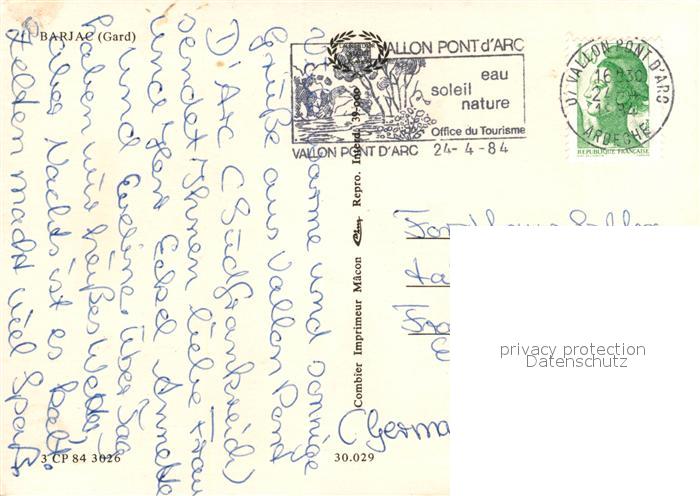 BARJAC (Gard)
VALLON PONT d'ARC
eau
soleil
nature
Office du Tourisme
VALLON PONT D'ARC 24-4-84
07 VALLON PONT D'ARC
16H30
ARDECHE
REPUBLIQUE FRANÇAISE
warme und sonnige
Grüße aus Vallon Pont
D'Arc (Südfrankreich)
sendet Ihnen liebe Frau
und Annette
und Eveline. Über Tag
haben wir heißes Wetter,
über Nachts ist es kalt.
Zelten macht viel Spaß.
Combier Imprimeur Mâcon Repro. Interd.
(Germa
privacy protection
Datenschutz
3 CP 84 3026
30.029